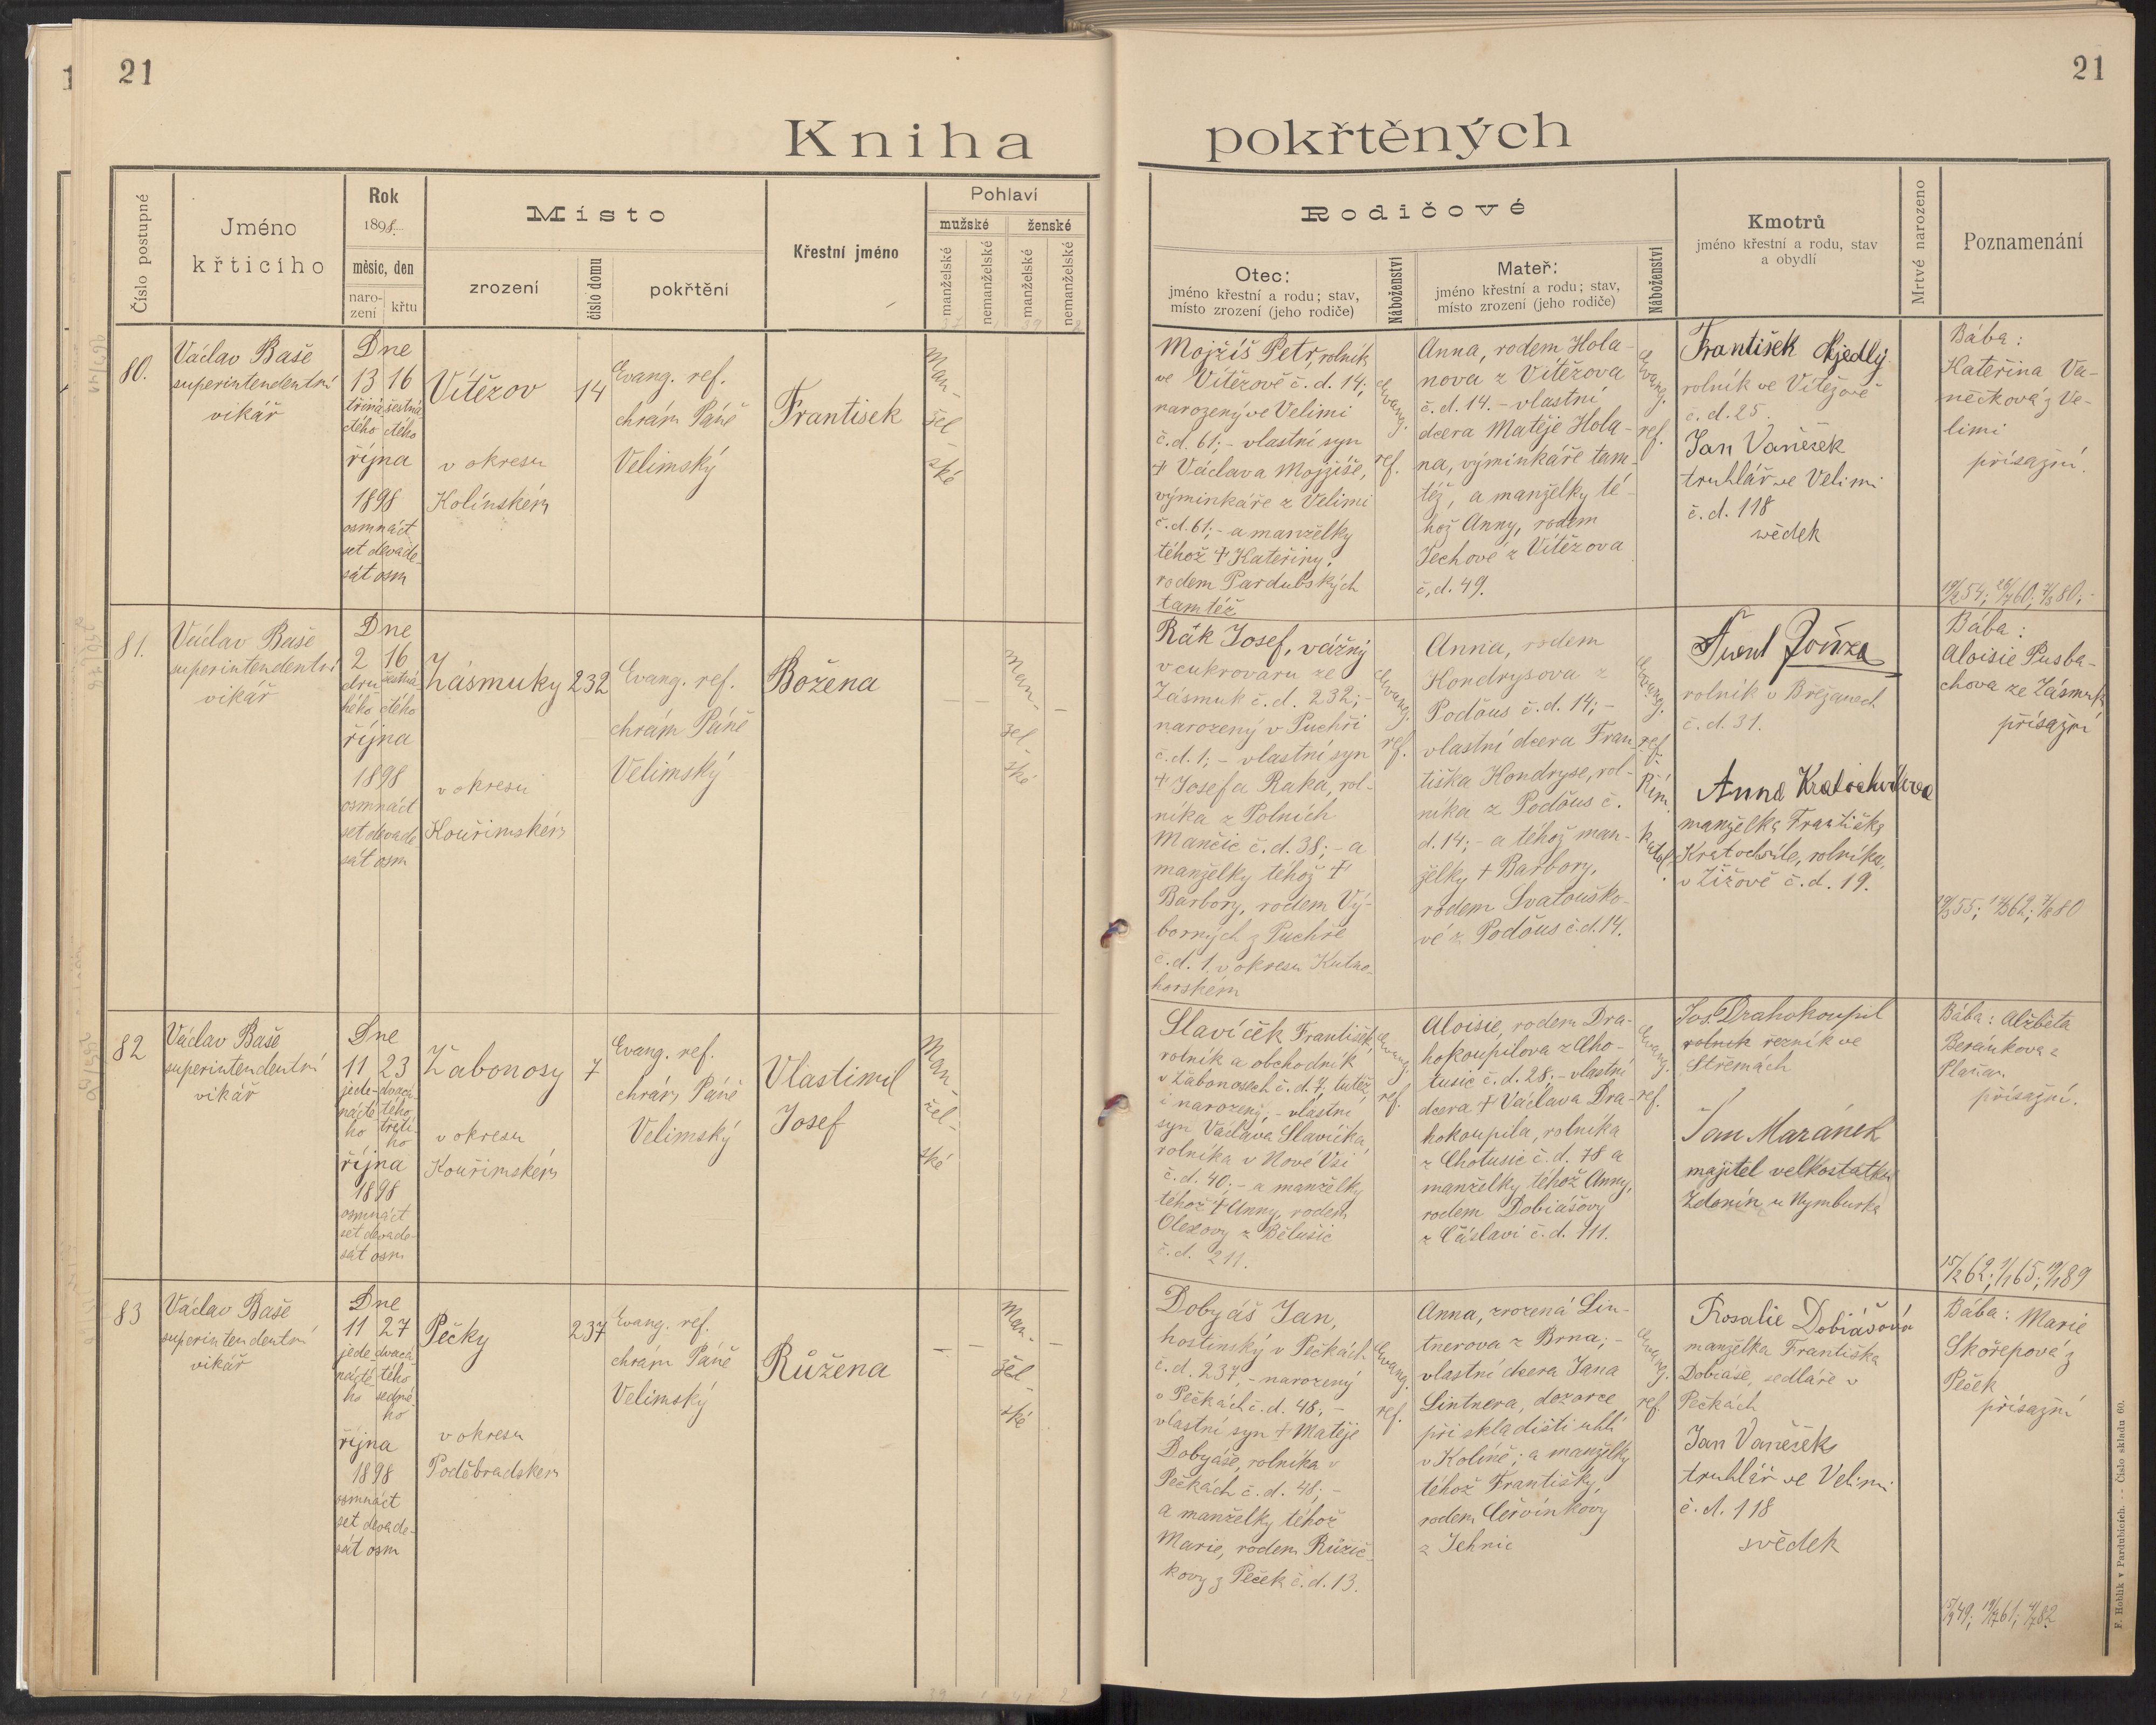 21
21
Kniha pokřtěných
Číslo postupné
Jméno
křticího
Rok
1898.
měsíc, den
naro-
zení
křtu
Místo
zrození
číslo domu
pokřtění
Křestní jméno
Pohlaví
mužské
ženské
manželské
nemanželské
manželské
nemanželské
Rodičové
Otec:
jméno křestní a rodu; stav,
místo zrození (jeho rodiče)
Náboženství
Mateř:
jméno křestní a rodu; stav,
místo zrození (jeho rodiče)
Náboženství
Kmotrů
jméno křestní a rodu, stav
a obydlí
Mrtvé narozeno
Poznamenání
80.
Václav Baše
superintendentní
vikář
Dne
13 16
třiná- šestná-
ctého ctého
října
1898
osmnáct
set devade-
sát osm
Vítězov
v okresu
Kolínském
14
Evang. ref.
chrám Páně
Velimský
Frantisek
Man-
žel-
ské
Mojžíš Petr, rolník
ve Vítězově č. d. 14;
narozený ve Velimi
č. d. 61; - vlastní syn
† Václava Mojžíše,
výminkáře z Velimi
č. d. 61; - a manželky
téhož † Kateřiny,
rodem Pardubských
tamtéž
Evang.
ref.
Anna, rodem Hola-
nova z Vítězova
č. d. 14. - vlastní
dcera Matěje Hola-
na, výminkáře tam-
též, a manželky té-
hož Anny, rodem
Jechové z Vítězova
č. d. 49.
Evang.
ref.
František Nejedlý
rolník ve Vítězově
č. d. 25.
Jan Vaněček
truhlář ve Velimi
č. d. 118
svědek
Bába:
Kateřina Va-
něčková z Ve-
limi
přísažní.
81.
Václav Baše
superintendentní
vikář
Dne
2 16
dru- šestná-
hého ctého
října
1898
osmnáct
set devade
sát osm
Zásmuky
v okresu
Kouřimském
232
Evang. ref.
chrám Páně
Velimský
Božena
Man-
žel-
ské
Rák Josef, vážný
v cukrovaru ze
Zásmuk č. d. 232; -
narozený v Puchři
č. d. 1; - vlastní syn
† Josefa Raka, rol-
níka z Polních
Mančic č. d. 38; - a
manželky téhož †
Barbory, rodem Vý-
borných z Puchře
č. d. 1. v okresu Kutno-
horském
Evang.
ref.
Anna, rodem
Hondrysova z
Podčus č. d. 14; -
vlastní dcera Fran-
tiška Hondryse, rol-
níka z Podčus č.
d. 14; - a téhož man-
želky † Barbory,
rodem Svatouško-
vé z Podčus č. d. 14.
Evang.
ref.
Řím.
katol.
rolník v Břežanech
č. d. 31.
Anna Kratochvílova
manželka Františka
Kratochvíle, rolníka
v Žižově č. d. 19.
Bába:
Aloisie Pusba-
chova ze Zásmuk
přísažní
82
Václav Baše
superintendentní
vikář
Dne
11 23
jede- dvacá-
nácté- tého
ho třetí-
ho
října
1898
osmnáct
set devade-
sát osm
Žabonosy
v okresu
Kouřimském
7
Evang. ref.
chrám Páně
Velimský
Vlastimil
Josef
Man-
žel-
ské
Slavíček František,
rolník a obchodník
v Žabonosech č. d. 7. tutéž
i narozený, - vlastní
syn Václava Slavíčka,
rolníka v Nové Vsi
č. d. 40. - a manželky
téhož † Anny, rodem
Olexovy z Bělušic
č. d. 211.
Evang.
ref.
Aloisie, rodem Dra-
hokoupilova z Cho-
tusic č. d. 28; - vlastní
dcera † Václava Dra-
hokoupila, rolníka
z Chotusic č. d. 78 a
manželky téhož Anny,
rodem Dobiášovy
z Čáslavi č. d. 111.
Evang.
ref.
Jos. Drahokoupil
rolník řezník ve
Střemách
Jan Mazánek
majitel velkostatku
Zdonín u Nymburka
Bába: Alžběta
Beránkova z
Plaňan
přísažní.
15/2 62; 7/1 65; 19/1 89
83
Václav Baše
superintendentní
vikář
Dne
11 27
jede- dvacá-
nácté- tého
ho sedmé-
ho
října
1898
osmnáct
set devade-
sát osm
Pečky
v okresu
Poděbradském
237
Evang. ref.
chrám Páně
Velimský
Růžena
Man-
žel-
ské
Dobyáš Jan,
hostinský v Pečkách
č. d. 237, - narozený
v Pečkách č. d. 48; -
vlastní syn † Matěje
Dobyáše, rolníka v
Pečkách č. d. 48; -
a manželky téhož
Marie, rodem Růžič-
kovy z Peček č. d. 13.
Evang.
ref.
Anna, zrozená Lin-
tnerova z Brna; -
vlastní dcera Jana
Lintnera, dozorce
při skladišti uhlí
v Kolíně; a manželky
téhož Františky,
rodem Červínkovy
z Jehnic
Evang.
ref.
Rosalie Dobiášová
manželka Františka
Dobiáše, sedláře v
Pečkách
Jan Vaněček
truhlář ve Velimi
č. d. 118
svědek
Bába: Marie
Skořepová z
Peček
přísažní
F. Hoblík v Pardubicích. — Číslo skladu 60.